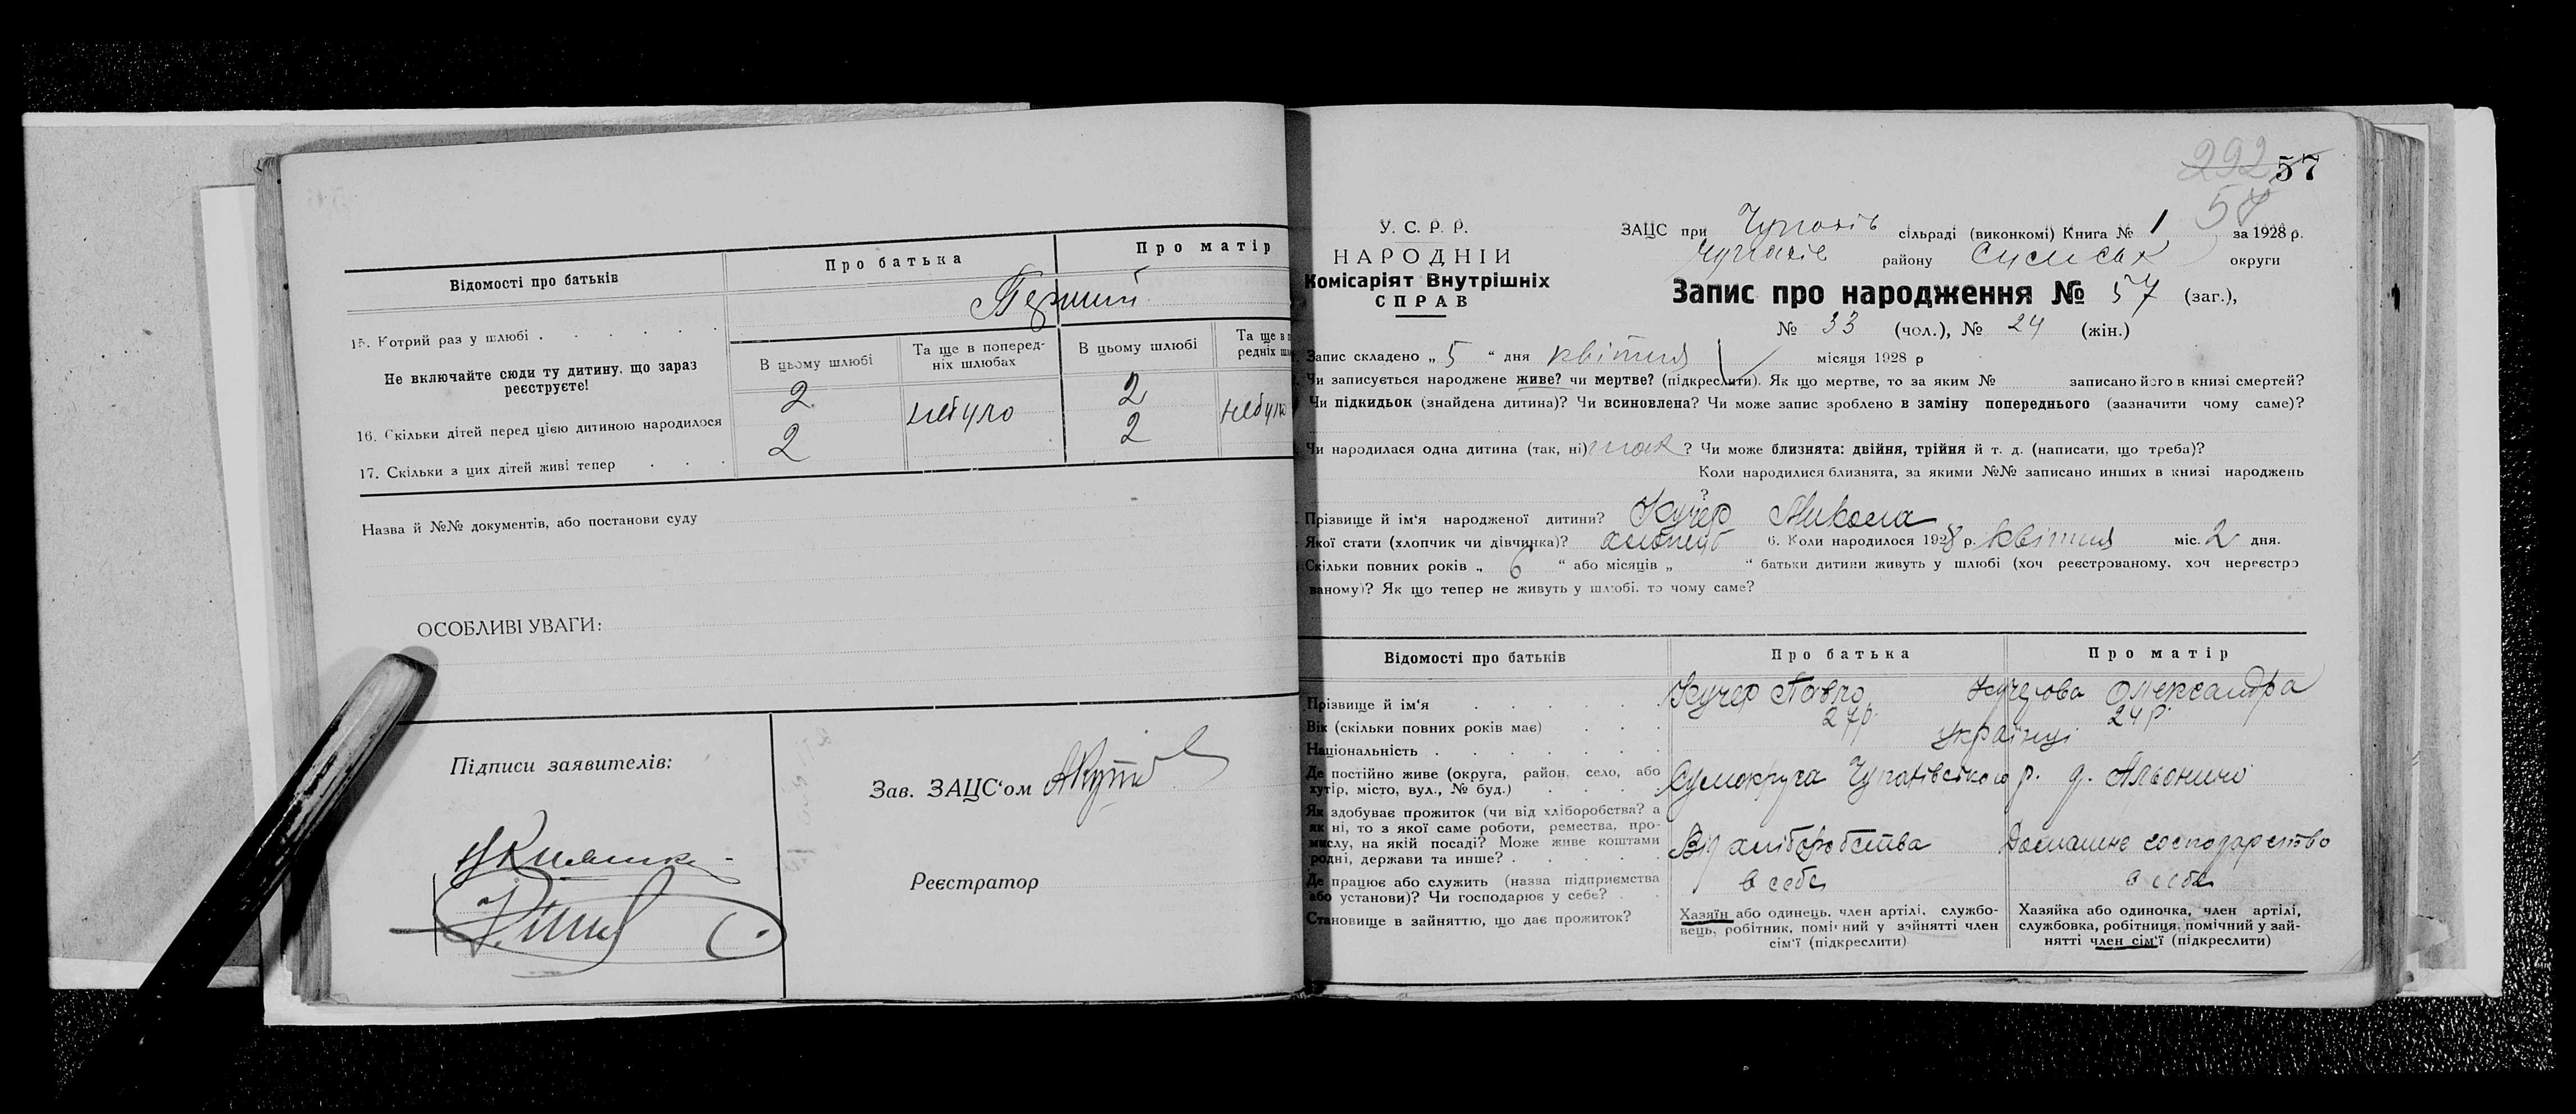 Відомості про батьків
Про батька
Про матір
15. Котрий раз у шлюбі
Перший
Не включайте сюди ту дитину, що зараз
реєструєте!
В цьому шлюбі
Та ще в поперед-
ніх шлюбах
В цьому шлюбі
Та ще в п
редніх шл
16. Скільки дітей перед цією дитиною народилося
2
небуло
2
небуло
17. Скільки з цих дітей живі тепер
2
2
Назва й №№ документів, або постанови суду
ОСОБЛИВІ УВАГИ:
Підписи заявителів:
Зав. ЗАЦС‘ом
Реєстратор
292 57
57
У. С. Р. Р.
НАРОДНІЙ
Комісаріят Внутрішніх
СПРАВ
ЗАЦС при сільраді (виконкомі) Книга № 1 за 1928 р.
району Сумськ округи
Запис про народження № 57 (заг.),
№ 33 (чол.), № 24 (жін.)
Запис складено „ 5 “ дня квітня місяця 1928 р
Чи записується народжене живе? чи мертве? (підкреслити). Як що мертве, то за яким № записано його в книзі смертей?
Чи підкидьок (знайдена дитина)? Чи всиновлена? Чи може запис зроблено в заміну попереднього (зазначити чому саме)?
Чи народилася одна дитина (так, ні) так ? Чи може близнята: двійня, трійня й т. д. (написати, що треба)?
Коли народилися близнята, за якими №№ записано инших в книзі народжень
?
Прізвище й ім‘я народженої дитини? Кучер Микола
Якої стати (хлопчик чи дівчинка)? хлопець 6. Коли народилося 1928 р. квітня міс. 2 дня.
Скільки повних років „ 6 “ або місяців „ “ батьки дитини живуть у шлюбі (хоч реєстрованому, хоч нереєстро
ваному)? Як що тепер не живуть у шлюбі, то чому саме?
Відомості про батьків
Про батька
Про матір
Прізвище й ім‘я
Кучер Павло
Кучерова Олександра
Вік (скільки повних років має)
27р.
24р.
Національність
Українці
Де постійно живе (округа, район, село, або
хутір, місто, вул., № буд.)
Сумокруга р. д.
Як здобуває прожиток (чи від хліборобства? а
як ні, то з якої саме роботи, ремества, про-
мислу, на якій посаді? Може живе коштами
родні, держави та инше?
Від хліборобства
Домашнє господарство
Де працює або служить (назва підприємства
або установи)? Чи господарює у себе?
в себе
в себе
Становище в зайняттю, що дає прожиток?
Хазяїн або одинець, член артілі, службо-
вець, робітник, помічний у зайнятті член
сім‘ї (підкреслити)
Хазяйка або одиночка, член артілі,
службовка, робітниця, помічний у зай-
нятті член сім‘ї (підкреслити)